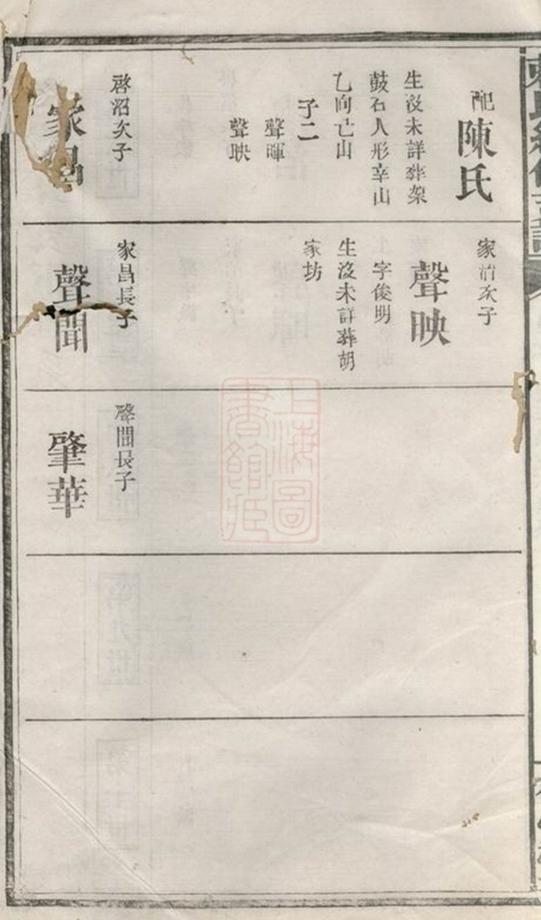 配陳氏
生沒未詳葬架
鼓石人形辛山
乙向亡山
子二
聲暉
聲映
啓沼次子
家昌
家沼次子
聲映
字俊明
生沒未詳葬胡
家坊
家昌長子
聲聞
聲聞長子
肇華
上海圖
書館藏